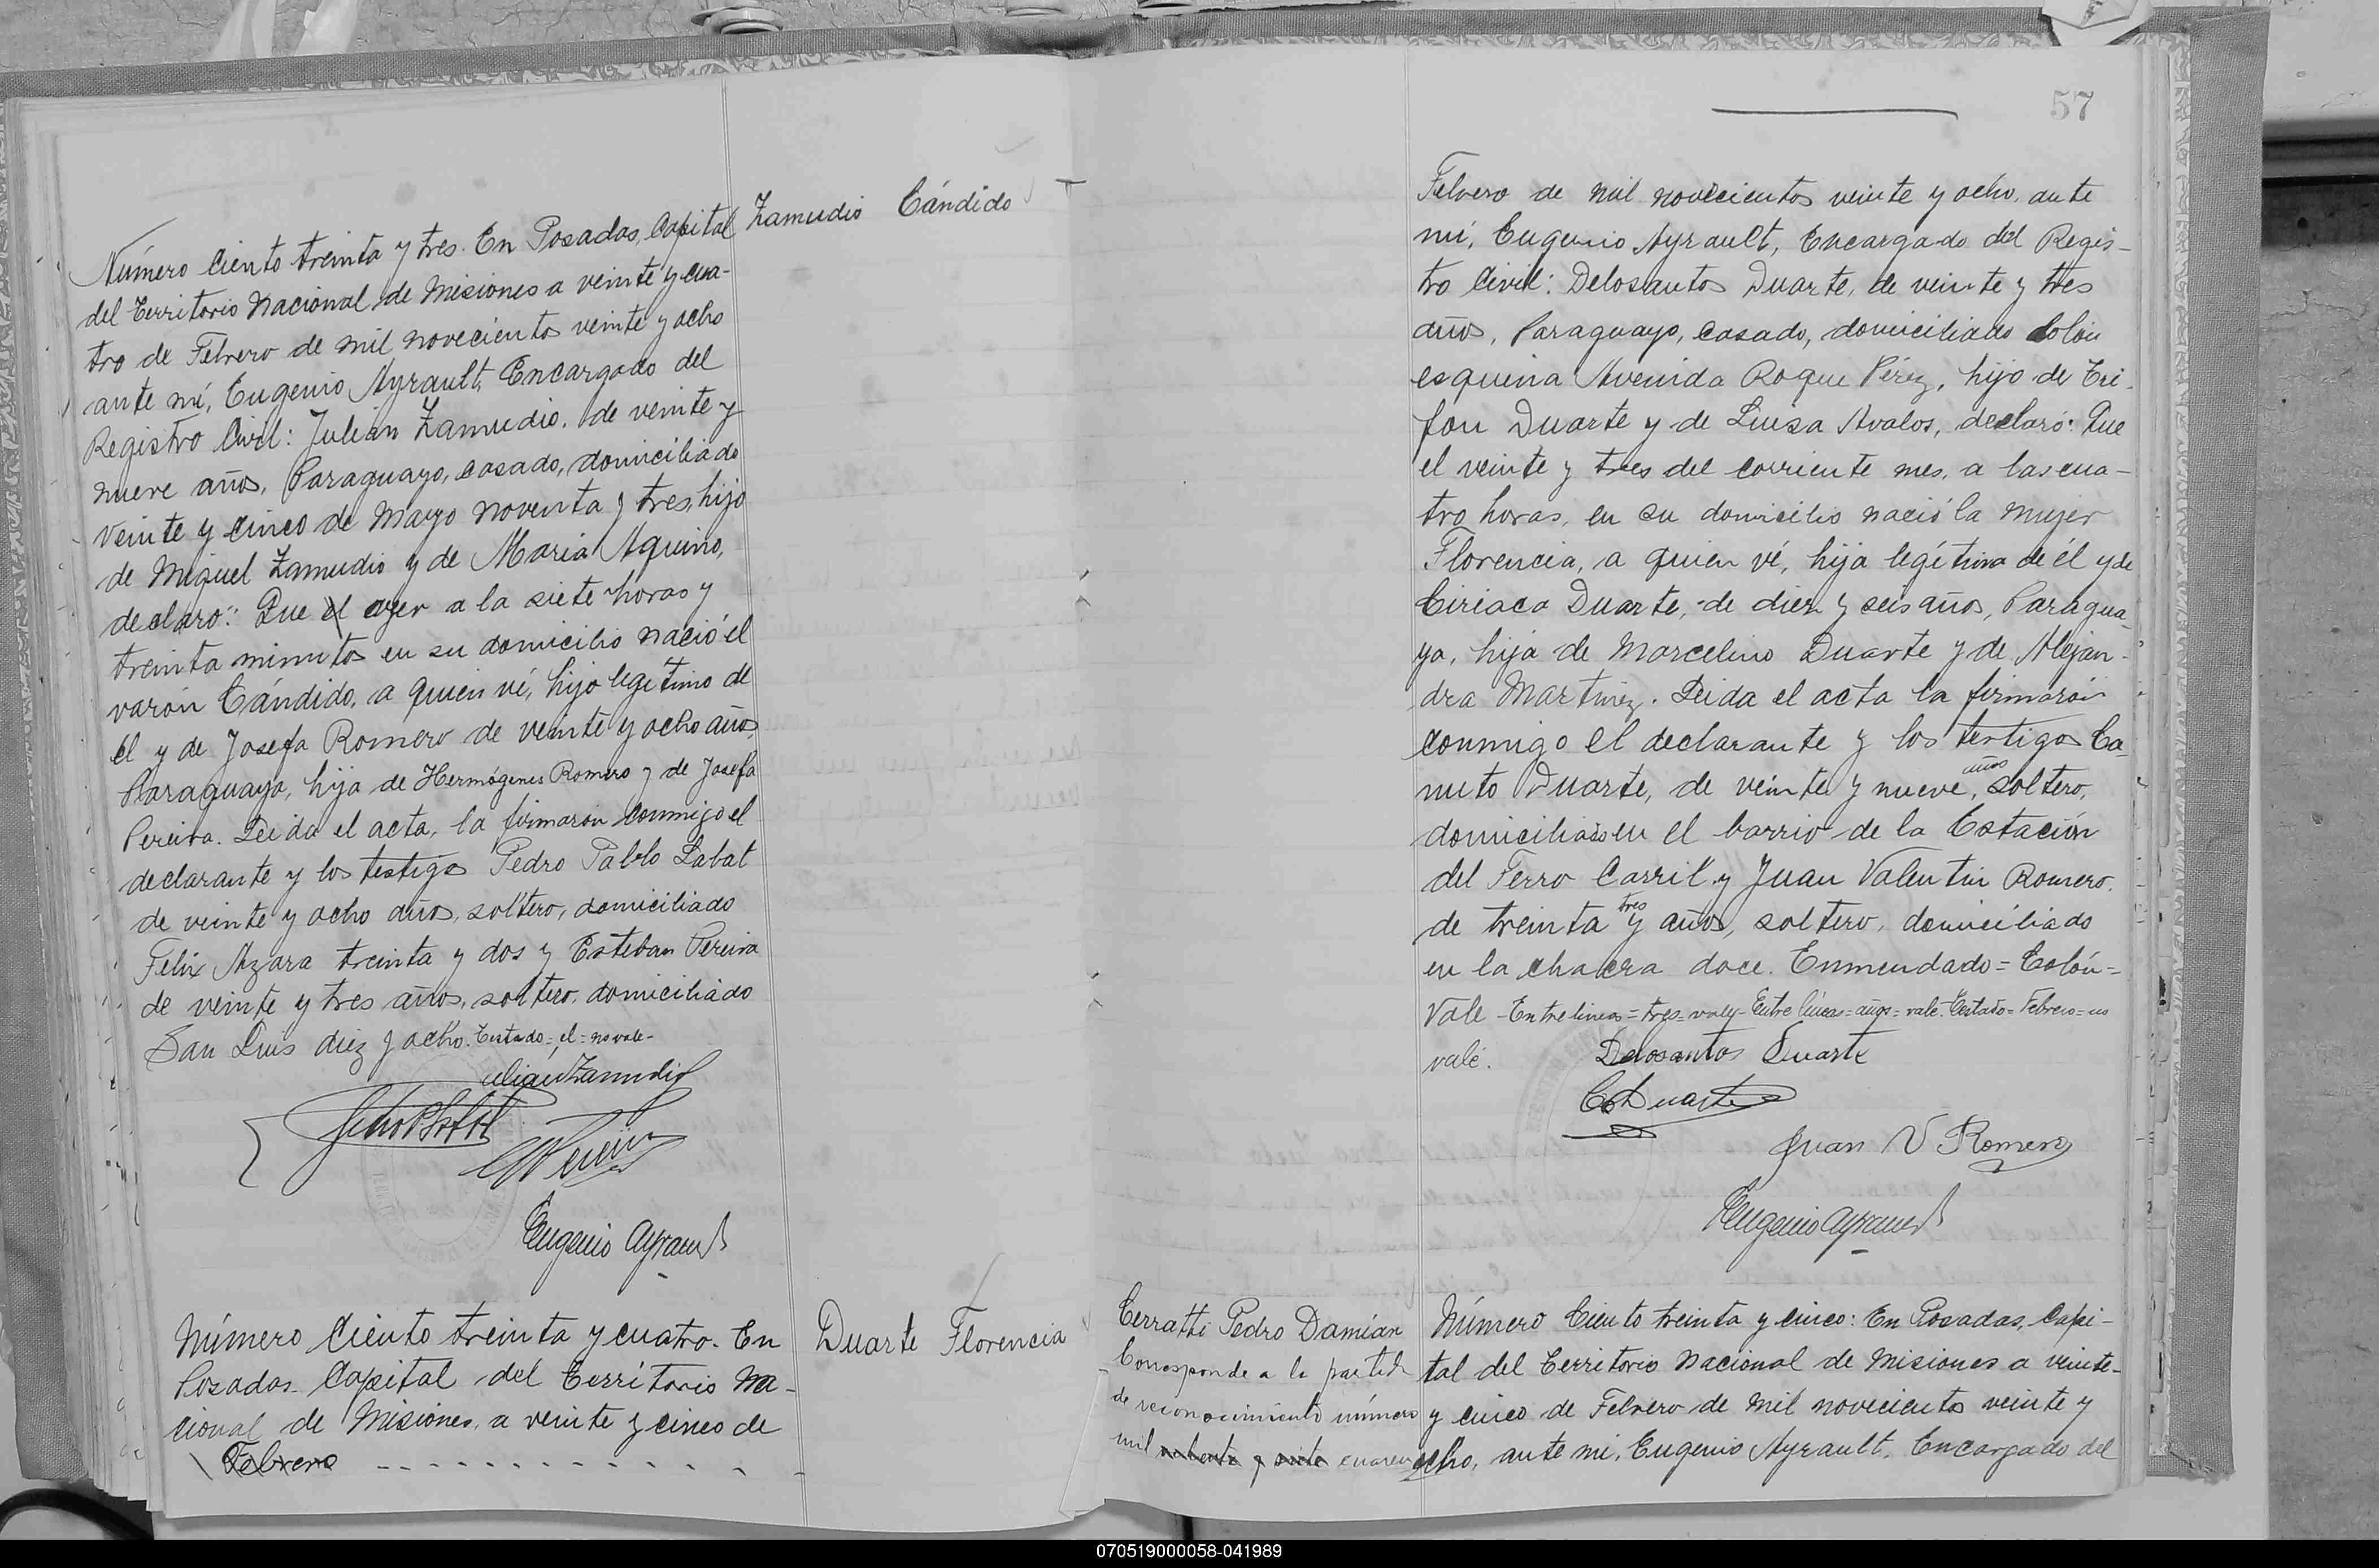 Zamudio Cándido
Número ciento treinta y tres. En Posadas, Capital
del Territorio Nacional de Misiones a veinte y cua-
tro de Febrero de mil novecientos veinte y ocho
ante mí, Eugenio Ayrault, Encargado del
Registro Civil: Julián Zamudio, de veinte y
nueve años, Paraguayo, casado, domiciliado
veinte y cinco de Mayo noventa y tres, hijo
de Miguel Zamudio y de Maria Aquino,
declaró: Que el ayer a la siete horas y
treinta minutos en su domicilio nació el
varón Cándido, a quien vé, hijo legítimo de
él y de Josefa Romero de veinte y ocho años,
Paraguaya, hija de Hermógenes Romero y de Josefa
Pereira. Leida el acta, la firmaron conmigo el
declarante y los testigos Pedro Pablo Labat
de veinte y ocho años, soltero, domiciliado
Felix Azara treinta y dos y Esteban Pereira
de veinte y tres años, soltero, domiciliado
San Luis diez y ocho. Testado=el=no vale-
Julián Zamudio
Eugenio Ayrault
Duarte Florencia
Número ciento treinta y cuatro. En
Posadas Capital del Territorio Na-
cional de Misiones, a veinte y cinco de
Febrero
57
Febrero de mil novecientos veinte y ocho, ante
mí, Eugenio Ayrault, Encargado del Regis-
tro Civil: Delosantos Duarte, de veinte y tres
años, Paraguayo, casado, domiciliado Colón
esquina Avenida Roque Pérez, hijo de Tri-
fon Duarte y de Luisa Avalos, declaró: Que
el veinte y tres del corriente mes, a las cua-
tro horas, en su domicilio nació la mujer
Florencia, a quien vé, hija legítima de él y de
Ciriaca Duarte, de diez y seis años, Paragua-
ya, hija de Marcelino Duarte y de Alejan-
dra Martinez. Leida el acta la firmarón
conmigo el declarante y los testigos Ca-
nuto Duarte, de veinte y nueve años, soltero,
domiciliado en el barrio de la Estación
del Ferro Carril y Juan Valentin Romero,
de treinta y tres años, soltero, domiciliado
en la chacra doce. Enmendado=Colón=
Vale -Entre lineas=tres=vale- Entre líneas=años=vale. Testado=Febrero=no
vale.
Delosantos Duarte
C Duarte
Juan V Romero
Eugenio Ayrault
Cerratti Pedro Damián
Corresponde a la partida
de reconocimiento número
mil ochenta y siete cuaren
Número Ciento treinta y cinco: En Posadas, Capi-
tal del Territorio Nacional de Misiones a veinte-
y cinco de Febrero de mil novecientos veinte y
ocho, ante mi, Eugenio Ayrault, Encargado del
070519000058-041989